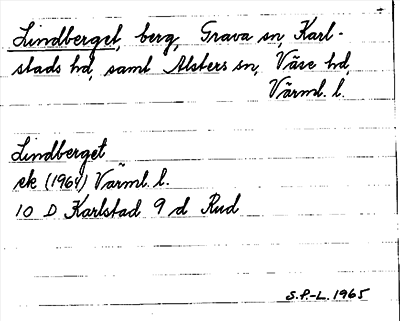 Lindberget, berg, Grava sn, Karl-
stads hd, samt Alsters sn, Väse hd,
Värml. l.
Lindberget
ek (1964) Värml. l.
10 D Karlstad 9 d Rud
S.P.-L. 1965